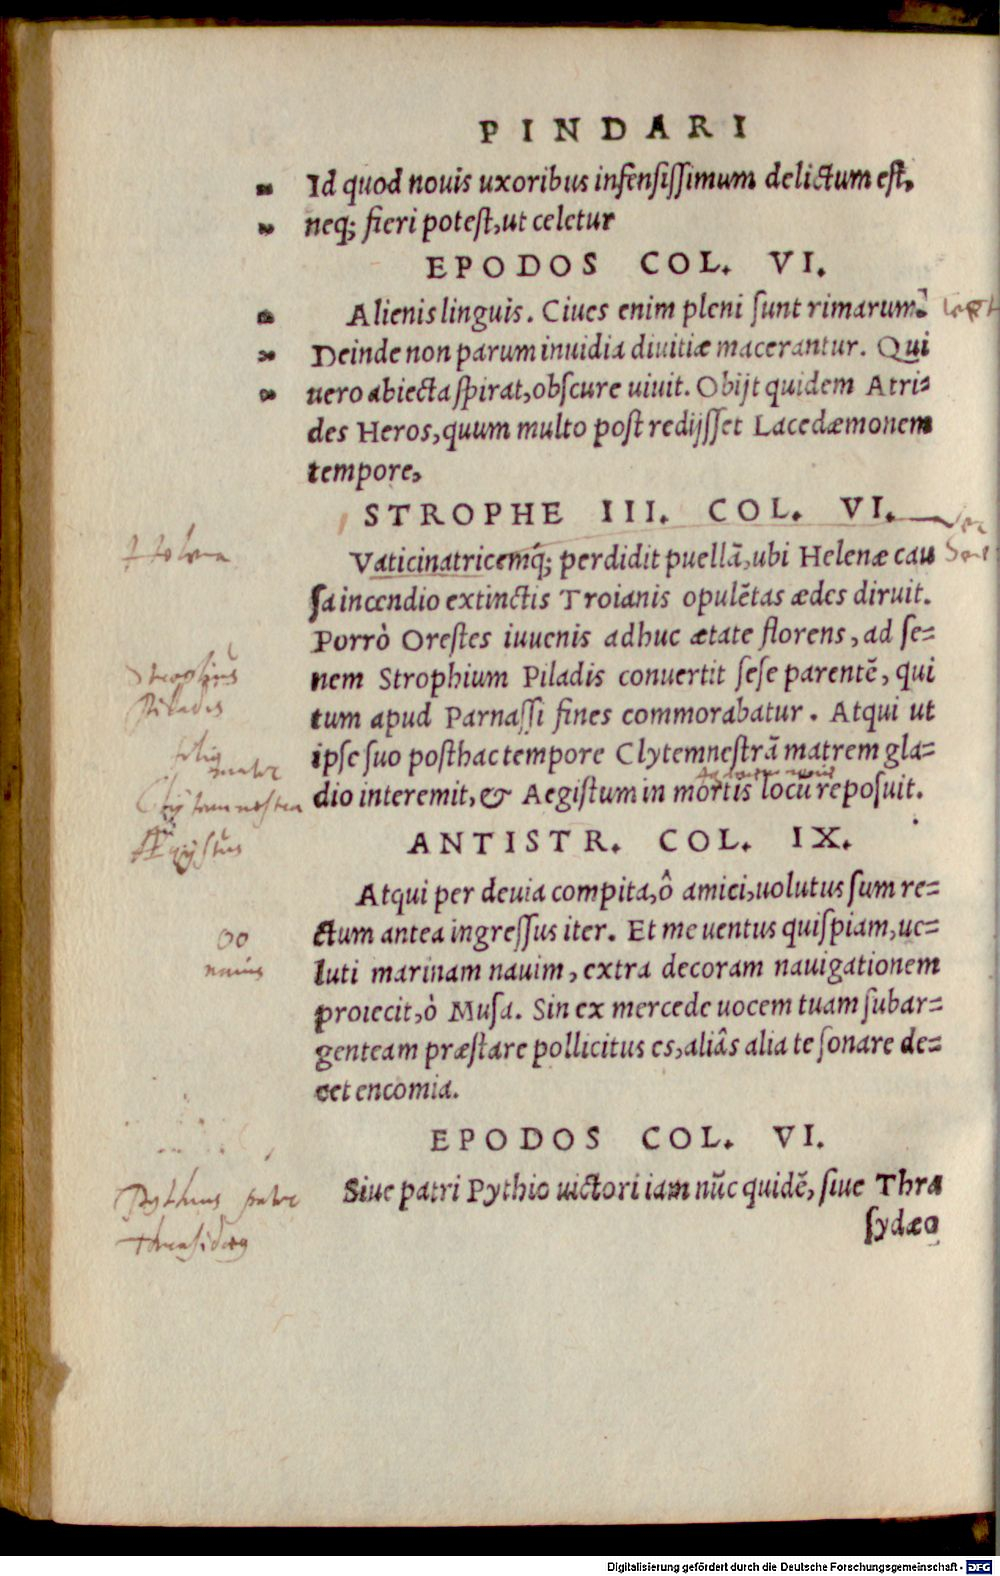 PINDARI
Id quod nouis uxoribus infensiſſimum delictum eſt,
neq; fieri poteſt, ut celetur
EPODOS COL. VI.
Alienis linguis. Ciues enim pleni ſunt rimarum.
Deinde non parum inuidia diuitiæ macerantur. Qui
uero abiecta ſpirat, obſcure uiuit. Obijt quidem Atri=
des Heros, quum multo poſt redijſſet Lacedæmonem
tempore,
STROPHE III. COL. VI.
Helena
Vaticinatricemq́; perdidit puellā, ubi Helenæ cau
ſa incendio extinctis Troianis opulētas ædes diruit.
Porrò Oreſtes iuuenis adhuc ætate florens, ad ſe=
Strophius
nem Strophium Piladis conuertit ſeſe parentē, qui
Piladis
tum apud Parnaſſi fines commorabatur. Atqui ut
ipſe ſuo poſthac tempore Clytemneſtrā matrem gla=
mater
Clytemnestra
dio interemit, & Aegiſtum in mortis locū repoſuit.
ANTISTR. COL. IX.
Aegystus
Atqui per deuia compita, ô amici, uolutus ſum re=
ctum antea ingreſſus iter. Et me uentus quiſpiam, ue=
nauis
luti marinam nauim, extra decoram nauigationem
proiecit, ò Muſa. Sin ex mercede uocem tuam ſubar=
genteam præſtare pollicitus es, aliâs alia te ſonare de=
cet encomia.
EPODOS COL. VI.
Pythius pater
Siue patri Pythio uictori iam nūc quidē, ſiue Thra
Thrasidæg
ſydæo
Digitalisierung gefördert durch die Deutsche Forschungsgemeinschaft - DFG